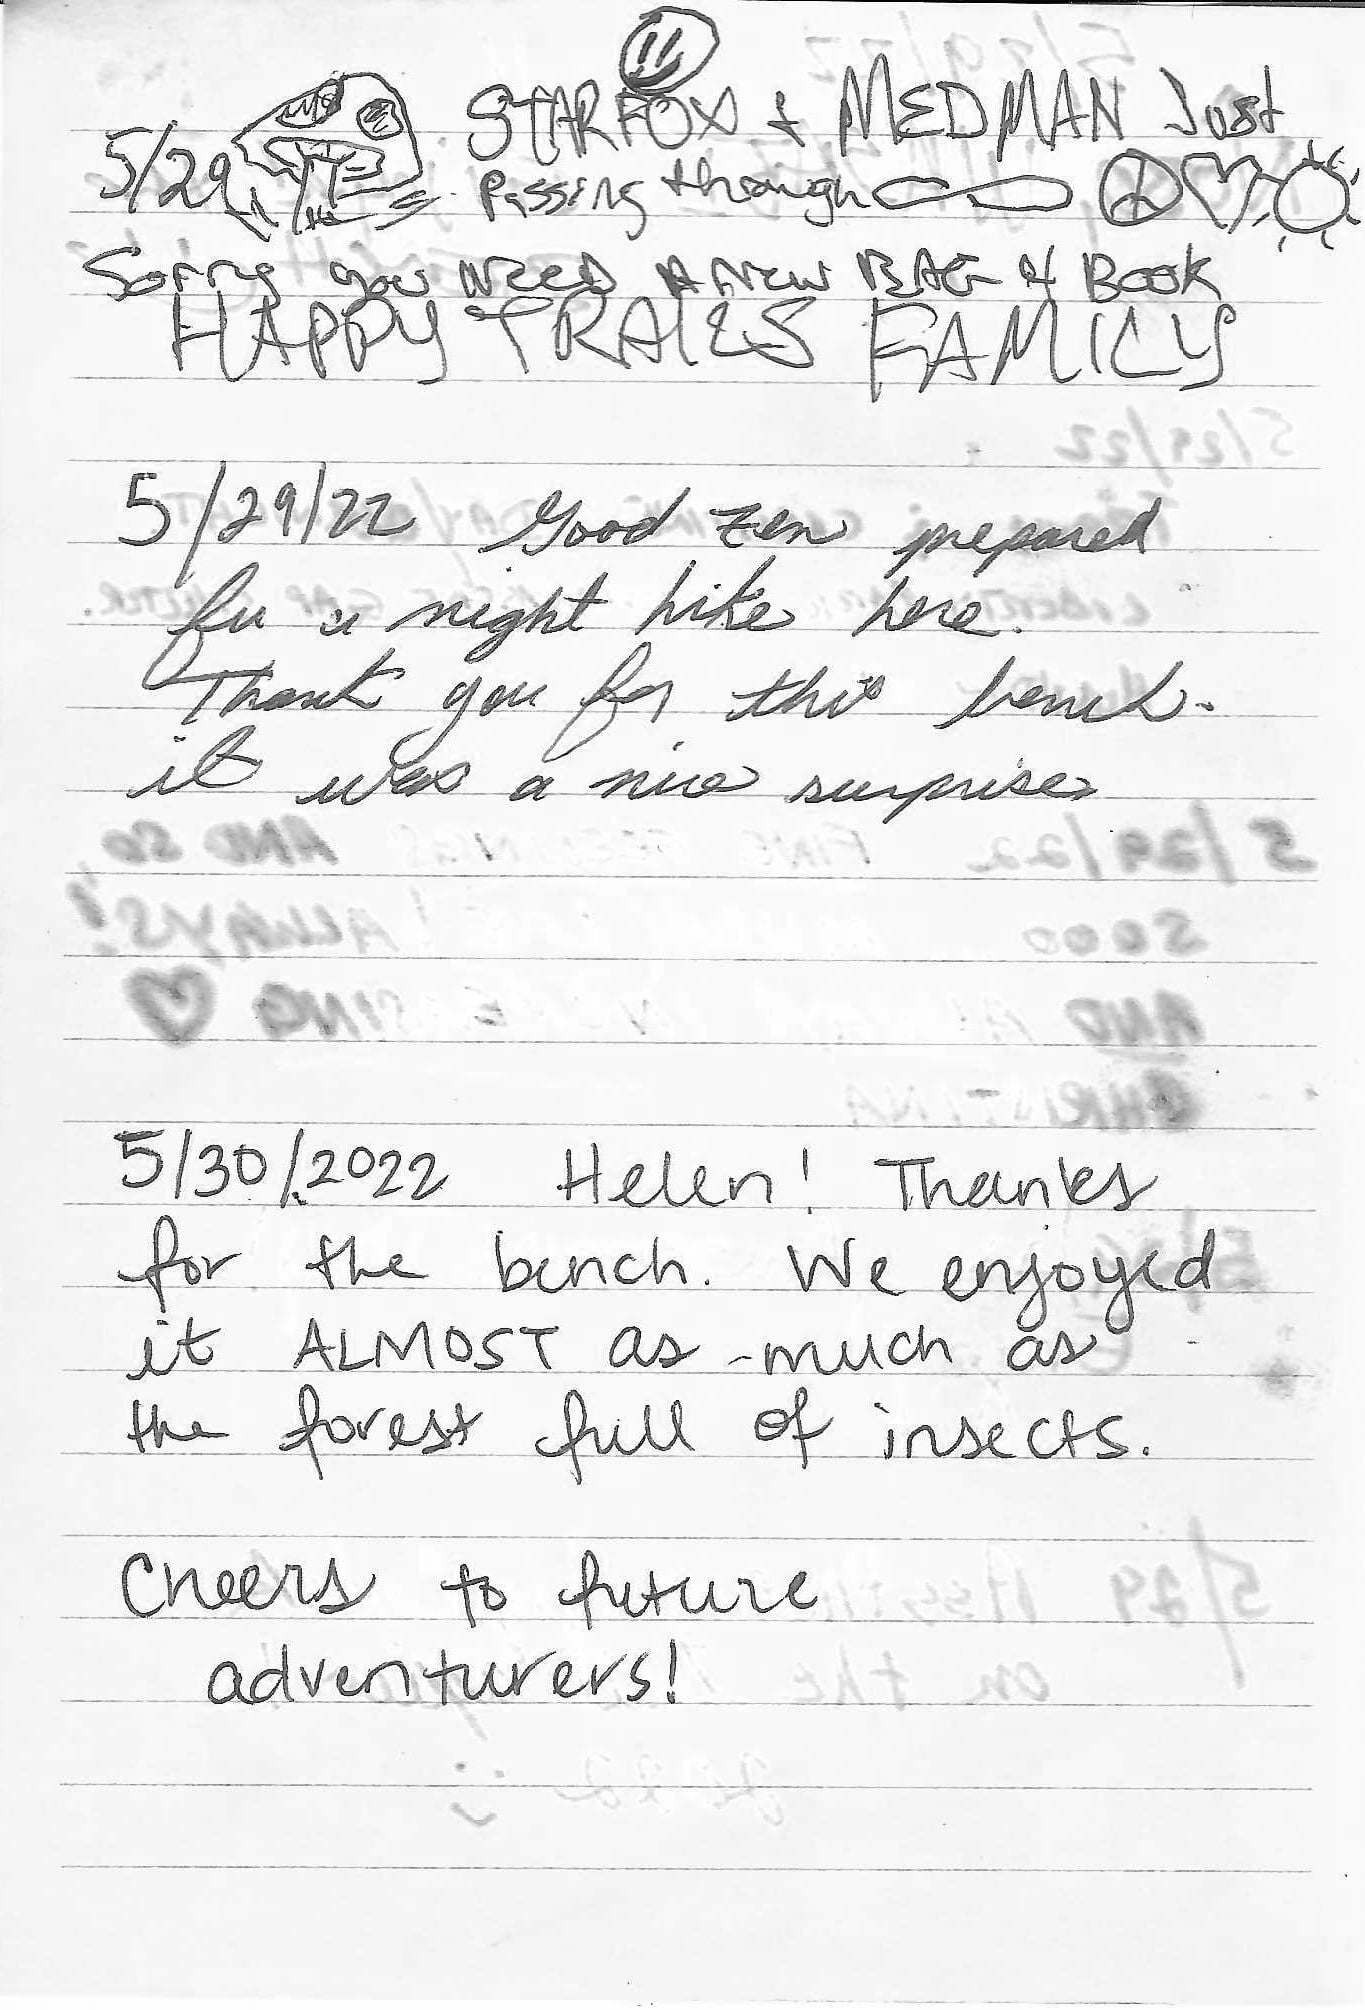 5/29 STARFOX + MEDMAN Just
Passing through
Sorry you NEED A NEW BAG & BOOK
HAPPY TRAILS FAMILY
5/29/22 Good zen prepared
for a night hike here.
Thank you for this bench.
it was a nice surprise
5/30/2022 Helen! Thanks
for the bench. We enjoyed
it ALMOST as much as
the forest full of insects.
Cheers to future
adventurers!